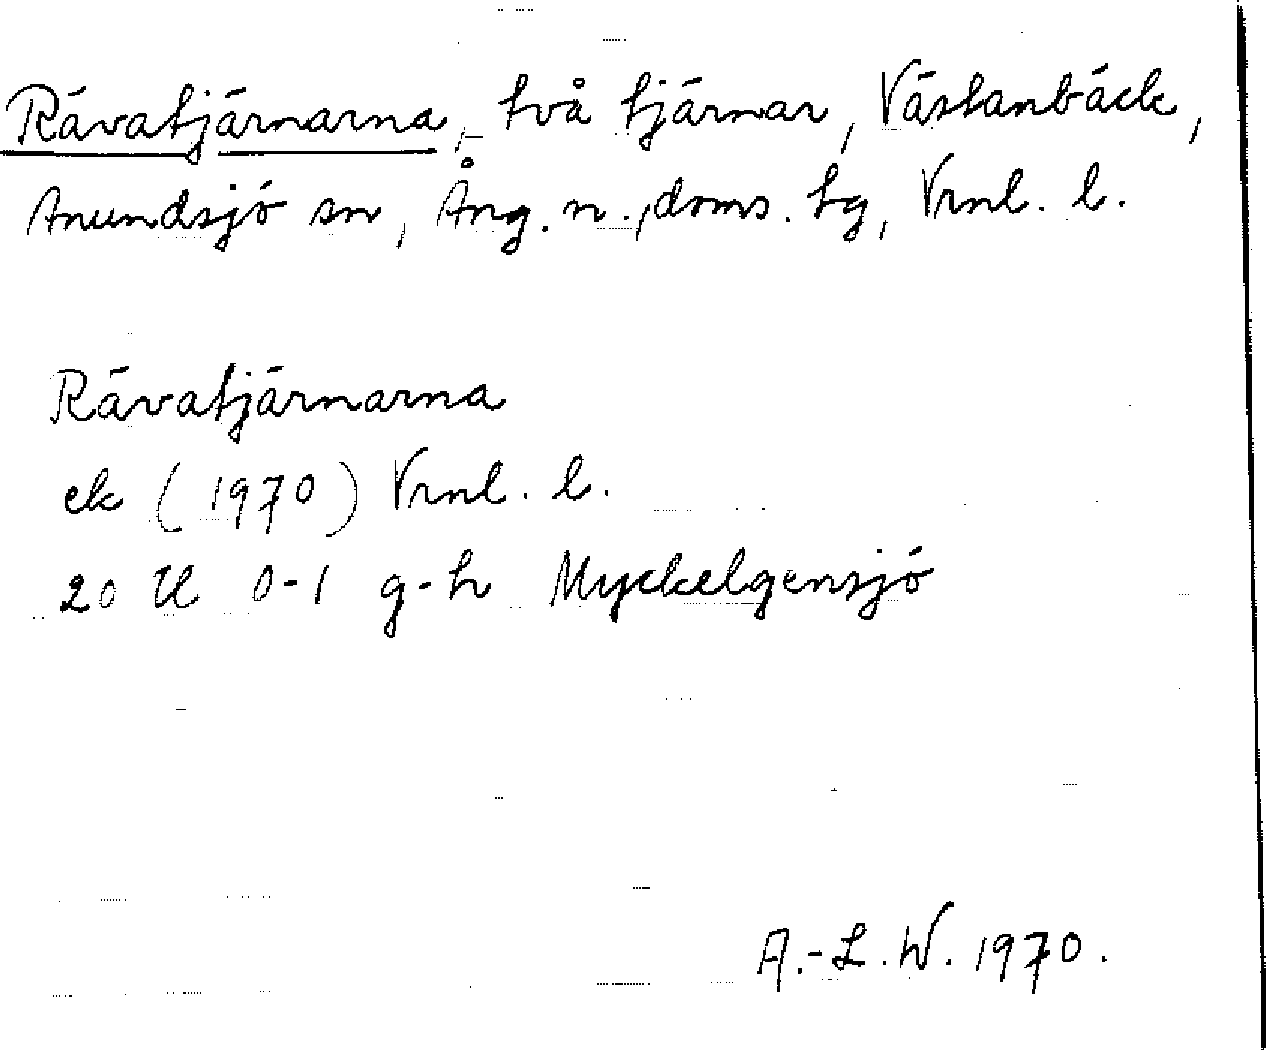 Rävatjärnarna, två tjärnar, Västanbäck,
Anundsjö sn, Ång. n. doms. hg, Vrnl. l.
Rävatjärnarna
ek (1970) Vrnl. l.
20 Il 0-1 g-h Myckelgensjö
A.-L. W. 1970.